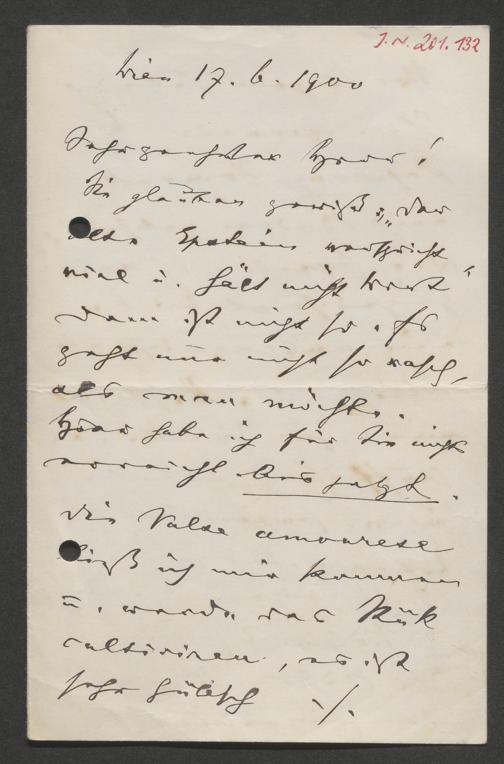 J. N. 201.132
Wien 17. 6. 1900
Sehr geehrter Herr!
Sie glauben gewiß: „der
alte Epstein verspricht
viel u. hält nicht Wort"
dem ist nicht so. Es
geht nur nicht so rasch,
als man möchte.
habe ich für Sie nichts
erreicht bis jetzt.
Die Valse amourese
ließ ich mir kommen
u. werde das Stük
cultiviren, es ist
sehr hübsch ./.